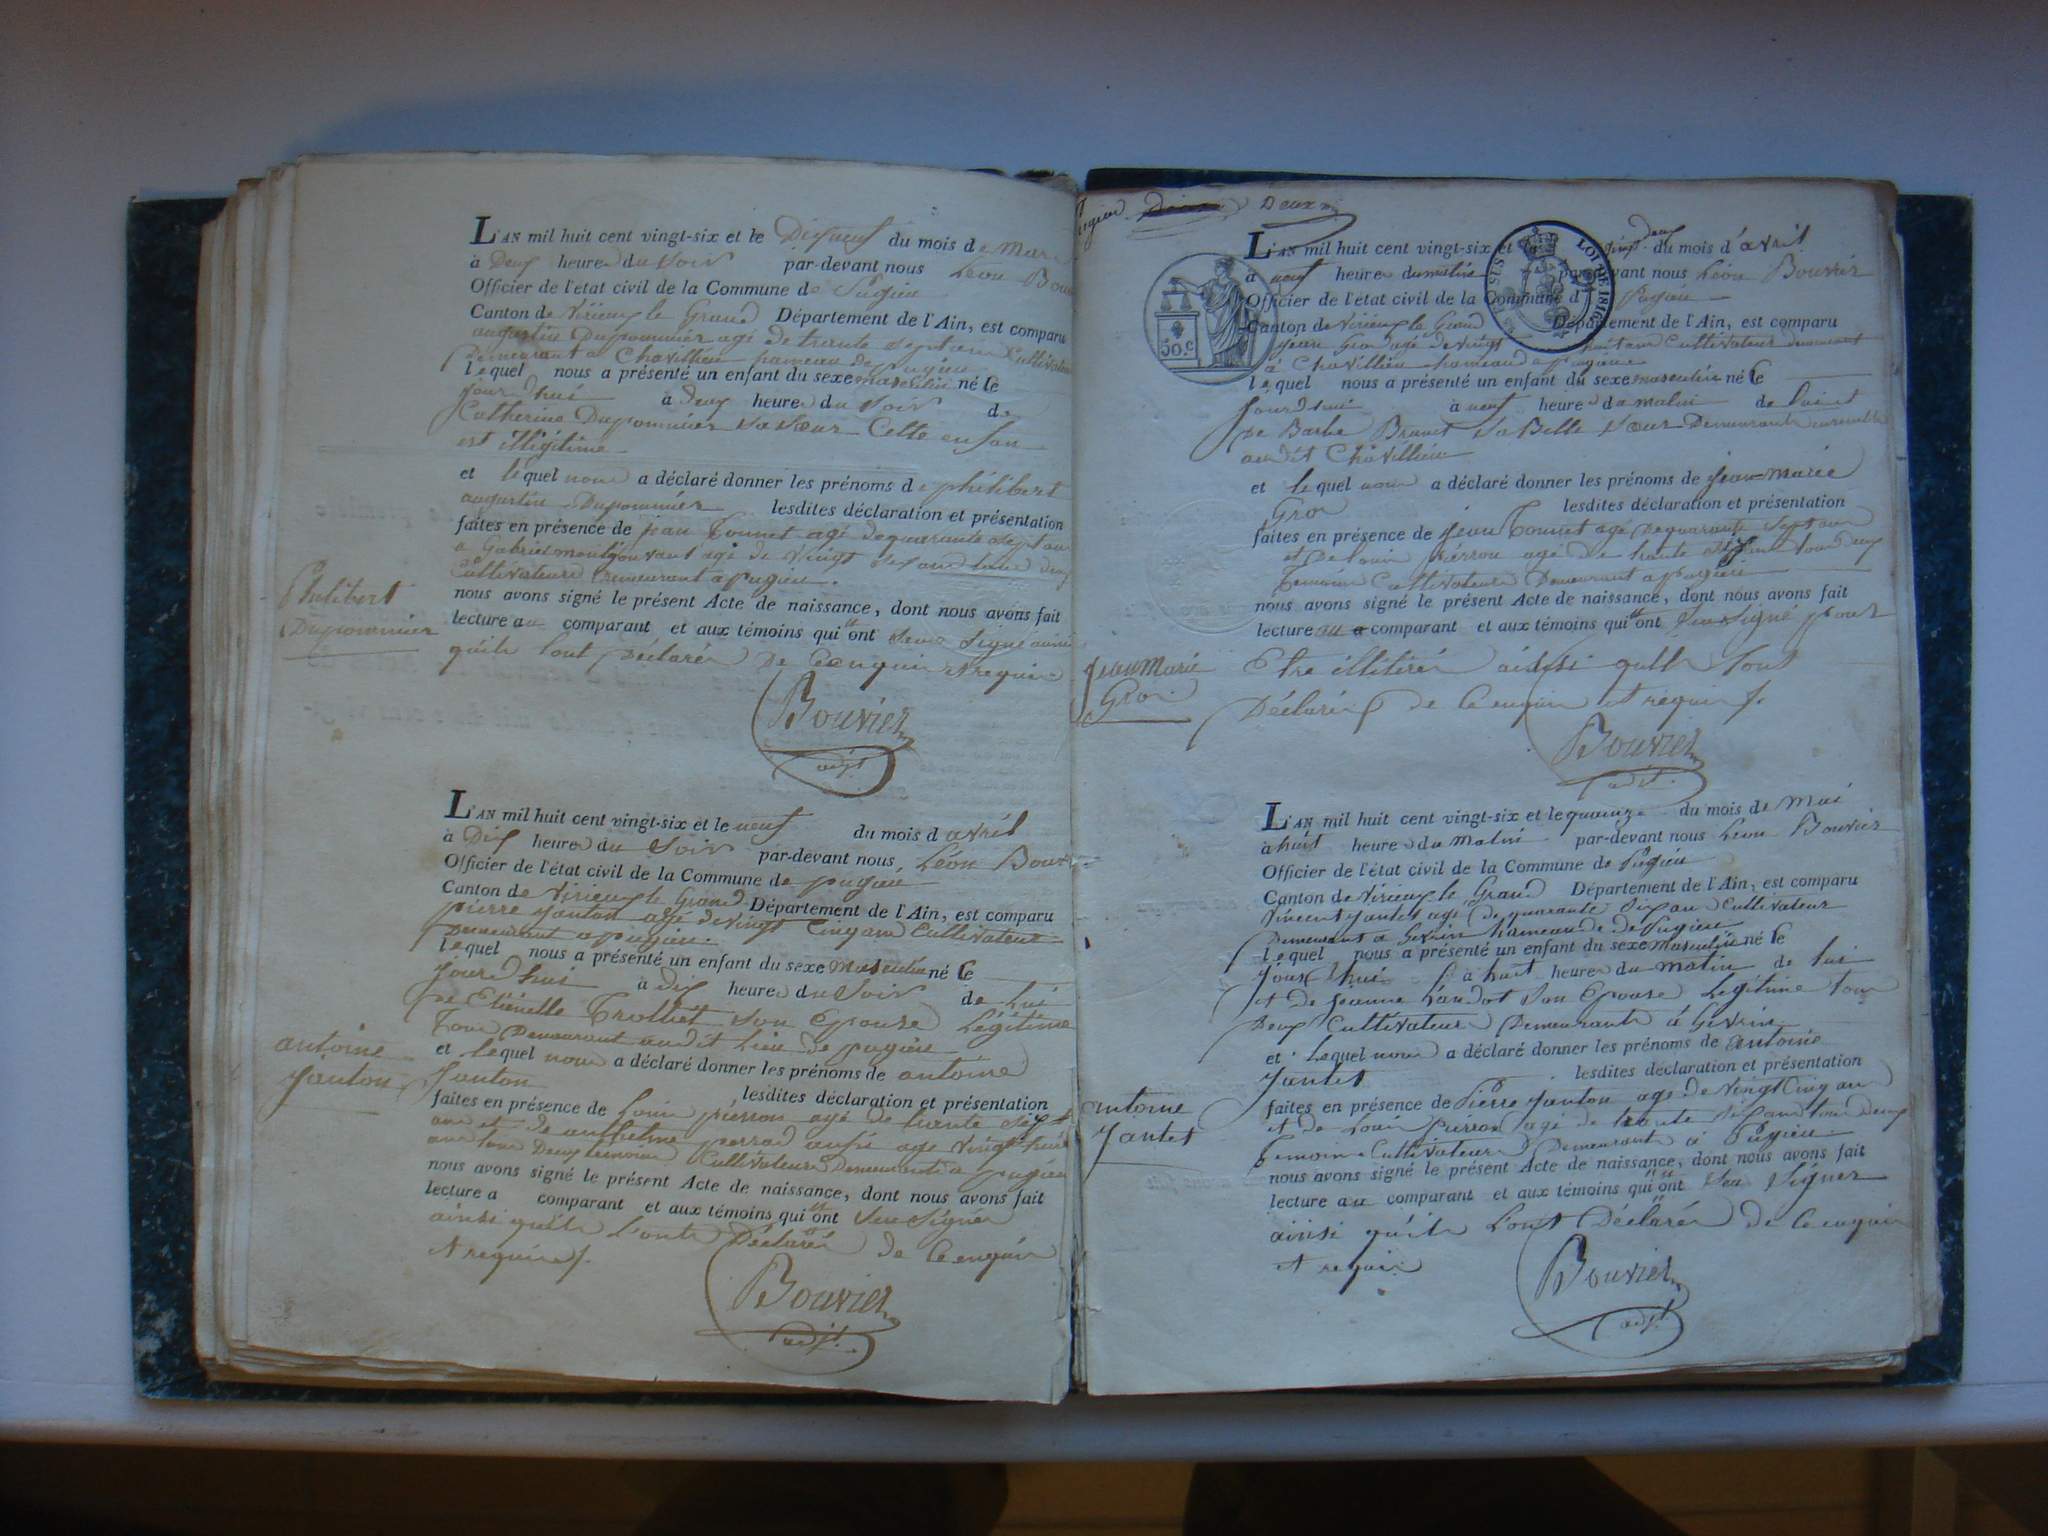 L'AN mil huit cent vingt-six et le Dixneuf du mois de Mars
à Deux heures du Soir par-devant nous Léon Bouv
Officier de l'état civil de la Commune de Pugieu
Canton de Virieux le Grand Département de l'Ain, est comparu
augustin Dupommier agé de trente sept ans Cultivateur
Demeurant a Chavillieu hameau de pugieu
lequel nous a présenté un enfant du sexe masculin né le
jourdhui à deux heures du Soir de
Catherine Dupommier sa sœur Cette enfan
est illégitime
et lequel nous a déclaré donner les prénoms de philibert
augustin Dupommier lesdites déclaration et présentation
faites en présence de jean Tonnet agé de quarante sept ans
a Gabriel montgonvant agé de Vingt sept ans tous deux
Cultivateurs Demeurant a pugieu.
nous avons signé le présent Acte de naissance, dont nous avons fait
lecture au comparant et aux témoins qui nont seus Signé ainsi
quils lont Déclarés De Ce enquis et requis
Philibert
Dupommier
Bouvier
adjt
L'AN mil huit cent vingt-six et le neuf du mois d avril
à Dix heures du Soir par-devant nous Léon Bouv
Officier de l'état civil de la Commune de pugieu
Canton de Virieux le Grand Département de l'Ain, est comparu
pierre Janton agé de vingt Cinq ans Cultivateur
Demeurant a pugieu.
lequel nous a présenté un enfant du sexe Masculin né le
jourdhui à dix heures du Soir de Lui
Trolliet son Epouse Légitime
Tous Demeurant audit Lieu de pugieu
et lequel nous a déclaré donner les prénoms de antoine
Janton lesdites déclaration et présentation
faites en présence de Louis pierron agé de trente sept
ans et de anthelme perrod aussi agé vingt huit
ans tous Deux temoins Cultivateurs Demeurant a pugieu
nous avons signé le présent Acte de naissance, dont nous avons fait
lecture a comparant et aux témoins qui nont seu Signer
ainsi quils l'onts Déclarés de Ce enquis
et requis.
antoine
Janton
Bouvier
adjt.
Deux
L'AN mil huit cent vingt-six et le vingt deux du mois d'avril
à neuf heures du matin par-devant nous Léon Bouvier
Officier de l'état civil de la Commune d Pugieu
Canton de Virieux le Grand Département de l'Ain, est comparu
Jean Gros agé de vingt huit ans Cultivateur demeurant
à Chavillieu hameau de pugieu
lequel nous a présenté un enfant du sexe masculin né le
Jourdhui à neuf heures du matin de lui et
de Barbe Brunet sa Belle sœur Demeurants ensemble
audit Chavillieu
et lequel nous a déclaré donner les prénoms de jean-marie
Gros lesdites déclaration et présentation
faites en présence de jean Tonnet agé de quarante Sept ans
et De louis pierron agé de trente Six ans tous deux
temoins Cultivateurs Demeurant a pugieu
nous avons signé le présent Acte de naissance, dont nous avons fait
lecture au comparant et aux témoins qui nont seu Signé pour
Etre illitirés ainssi quils lont
Déclarés de Ce enquis et requis.
Jean Marie
Gros
50.c
LOI DE 1816
Bouvier
adjt.
L'AN mil huit cent vingt-six et le quainze du mois de Mai
à huit heures du Matin par-devant nous Léon Bouvier
Officier de l'état civil de la Commune de Pugieu
Canton de Virieux le Grand Département de l'Ain, est comparu
Vincent Jantet agé de quarante Six ans Cultivateur
Demeurant à Gevrin hameau de de Pugieu
lequel nous a présenté un enfant du sexe masculin né le
jourdhui à huit heures du matin de lui
et de jeanne Landot Son Epouse Légitime tous
Deux Cultivateurs Demeurants à Gevrin
et lequel nous a déclaré donner les prénoms de antoine
Jantet lesdites déclaration et présentation
faites en présence de Pierre Janton agé de vingt Cinq ans
et de Louis pierron agé de trente sept ans tous Deux
Temoins Cultivateurs Demeurants à Pugieu
nous avons signé le présent Acte de naissance, dont nous avons fait
lecture au comparant et aux témoins qui nont seu Signer
ainsi quils Lont Déclarés de Ce enquis
et requis
antoine
Jantet
Bouvier
adjt.